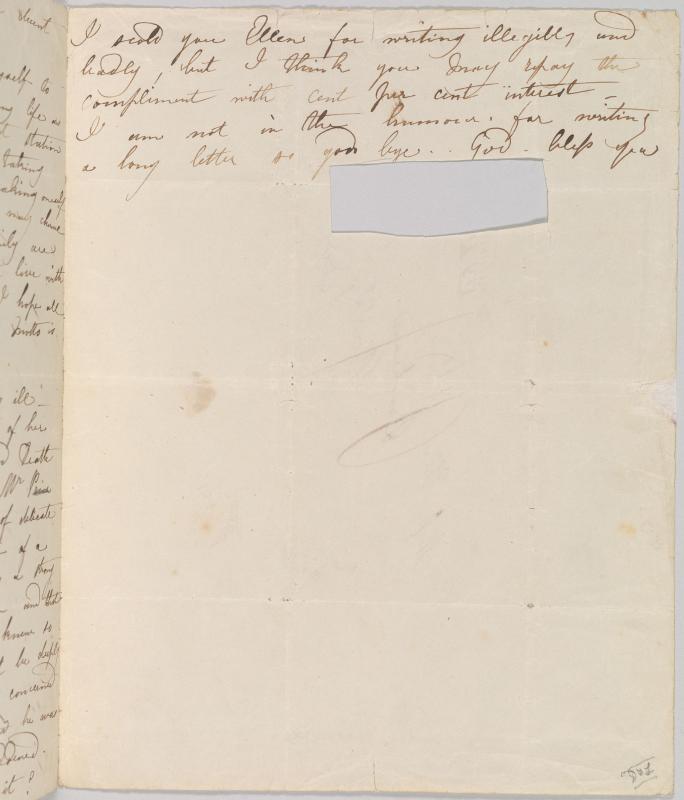 I scold you Ellen for writing illegibly and
badly, but I think you may repay the
compliment with cent per cent interest –
I am not in the humour for writing
a long letter so good bye. . God . bless you
decent
yself to
my life as
station
taking
aking oneself
may
ily are
live with
I hope all
is
ill –
of her
Death
Mr
of delicate
of a
a
and that
knew so
be deeply
concerned
he was
it ?